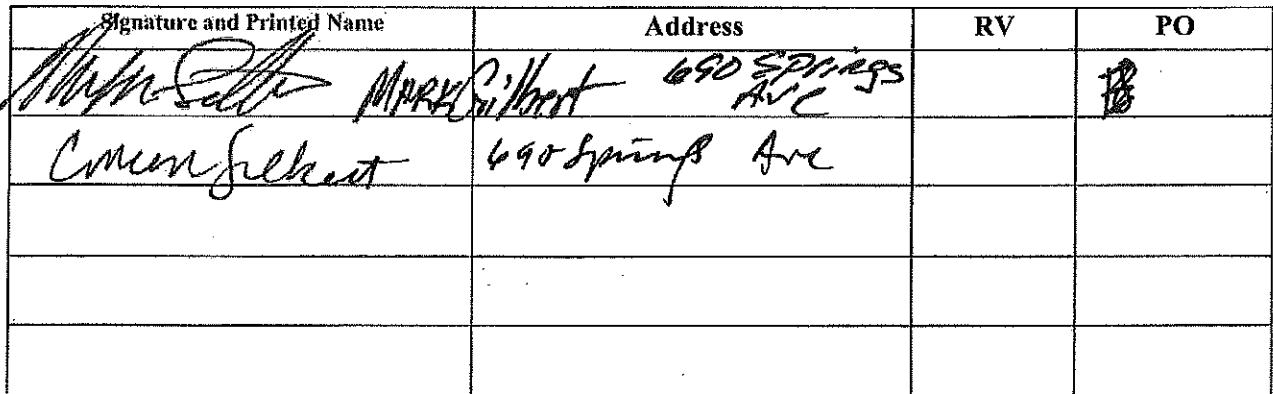 Signature and Printed Name Address RV PO
MARK Gilbert 690 Springs
Ave
Gilbert 690 Springs Ave